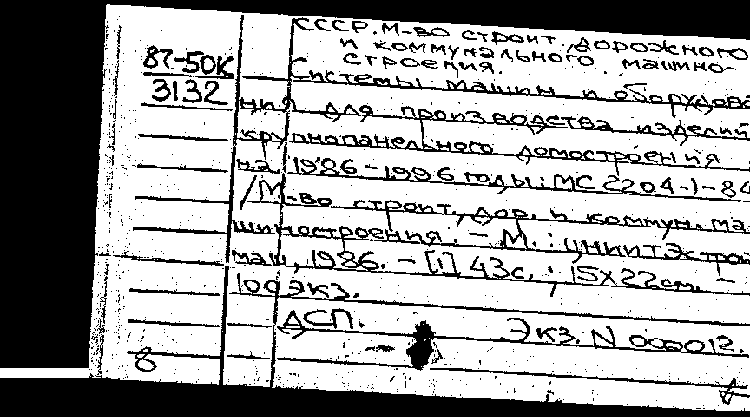 СССР. М-во строит., дорожного
и коммунального машино-
строения.
87-50К
3132
Системы машин и оборудова
ния для производства изделий
крупнопанельного домостроения
на 1986-1996 годы: МС 2204-1-84
/М-во строит., дор. и коммун. ма
шиностроения. - М. : ЦНИИТЭстрой
маш, 1986. - [1] 43с. ; 15х22см. -
100экз.
ДСП. Экз. N 000012.
8